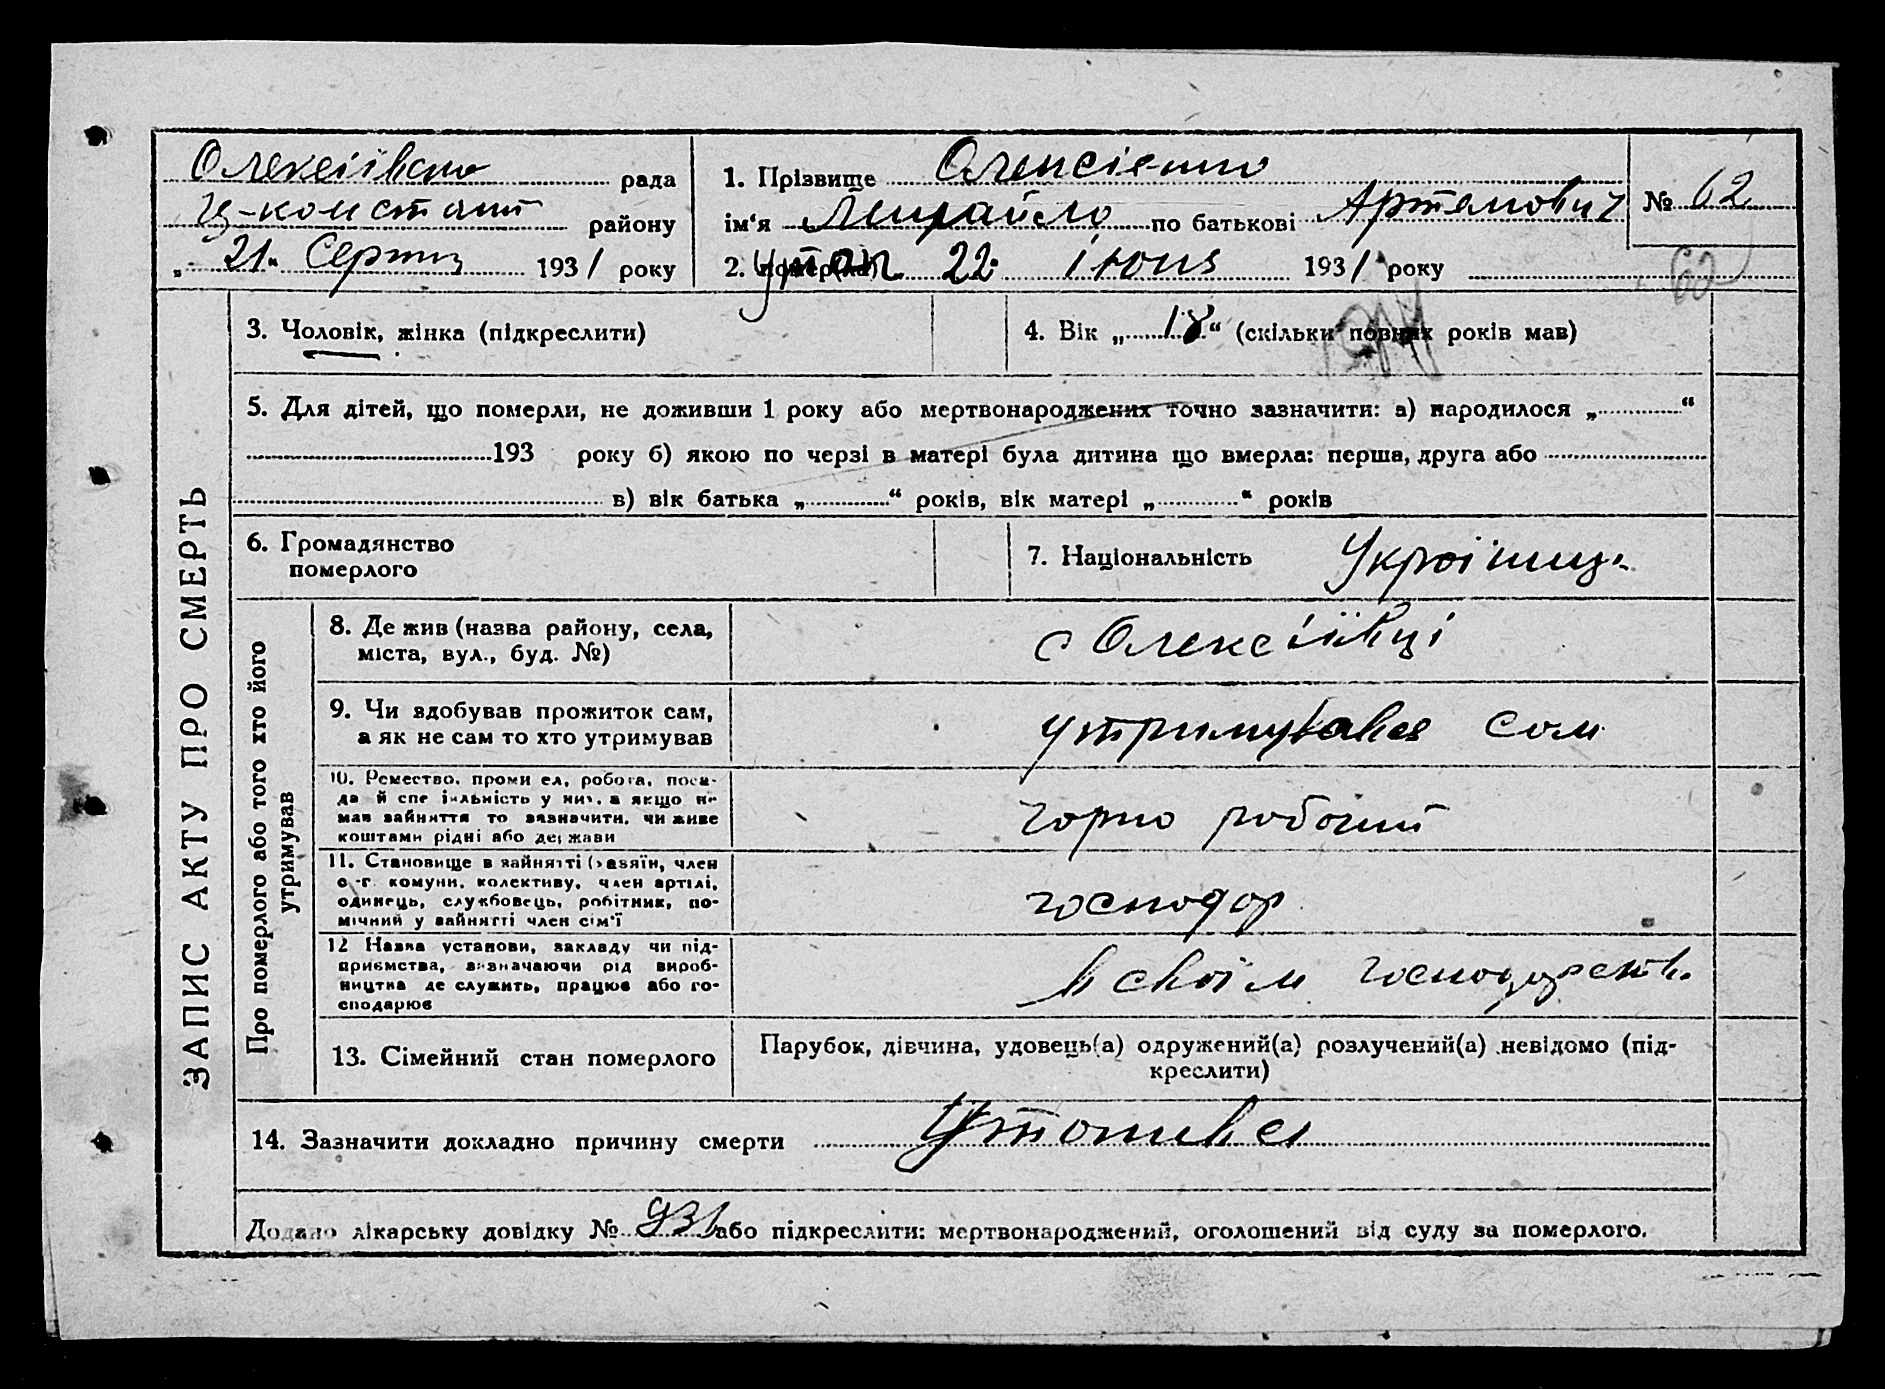 Олексіівська рада
району
„21“ Серпня 1931 року
1. Прізвище Олексієнко
ім‘я Михайло по батькові Артемович
2. помер(ла) 22 іюня 1931 року
№ 62
62
ЗАПИС АКТУ ПРО СМЕРТЬ
3. Чоловік, жінка (підкреслити)
4. Вік „18“ (скільки повних років мав)
5. Для дітей, що померли, не доживши 1 року або мертвонароджених точно зазначити: а) народилося „ “
193 року б) якою по черзі в матері була дитина що вмерла: перша, друга або
в) вік батька „ “ років, вік матері „ “ років
6. Громадянство
померлого
7. Національність Україниц
Про померлого або того хто його
утримував
8. Де жив (назва району, села,
міста, вул., буд. №)
с Олексіївці
9. Чи здобував прожиток сам,
а як не сам то хто утримував
утримувався сам
10. Ремество, проми ел, робота, поса-
да й спе іяльність у ни, а якщо не
мав зайняття то зазначити, чи живе
коштами рідні або держави
чорно робочий
11. Становище в зайнятті (хазяїн, член
с-г комуни, колективу, член артілі,
одинець, службовець, робітник, по-
мічний у зайнятті член сім‘ї
господар
12 Назва установи, закладу чи під-
приємства, визначаючи рід вироб-
ництва де служить, працює або го-
сподарює
в своїм господарстві
13. Сімейний стан померлого
Парубок, дівчина, удовець(а) одружений(а) розлучений(а) невідомо (під-
креслити)
14. Зазначити докладно причину смерти Утопився
Додано лікарську довідку № 931 або підкреслити: мертвонароджений, оголошений від суду за померлого.